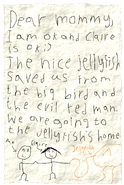 Dear mommy,
I am ok and Claire
is ok :)
The nice jellyfish
saved us from
the big bird and
the evil red man
We are going to
the jellyfish's home
Claire